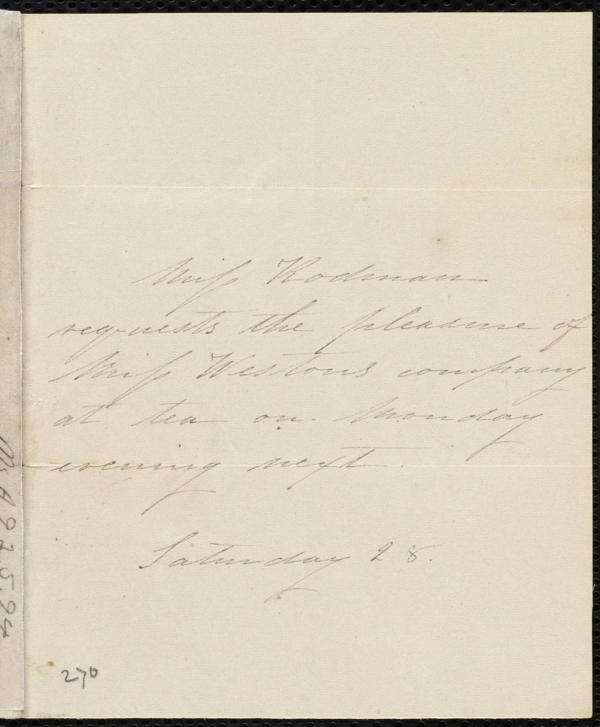 Miss Rodman
requests the pleasure of
Miss Westons company
at tea on Monday
evening next.
Saturday 28.
270
Ms A 9.2.5.94